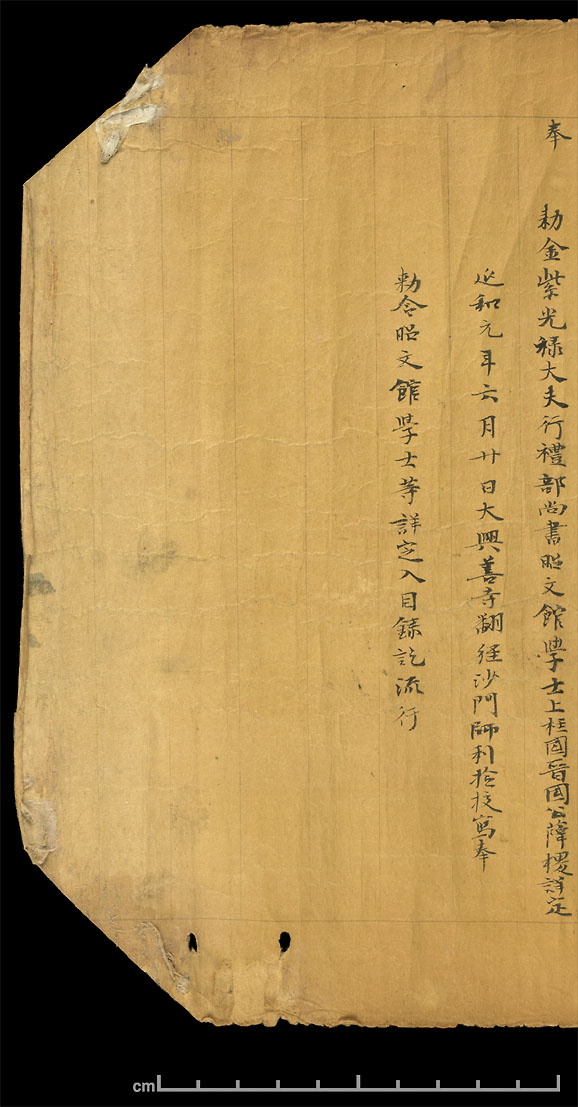 奉 勑金紫光祿大夫行禮部尚書昭文館學士上柱國晉國公薛稷詳定
延和元年六月廿日大興善寺翻経沙門師利撿校寫奉
勑令昭文館學士等詳定入目錄訖流行
cm